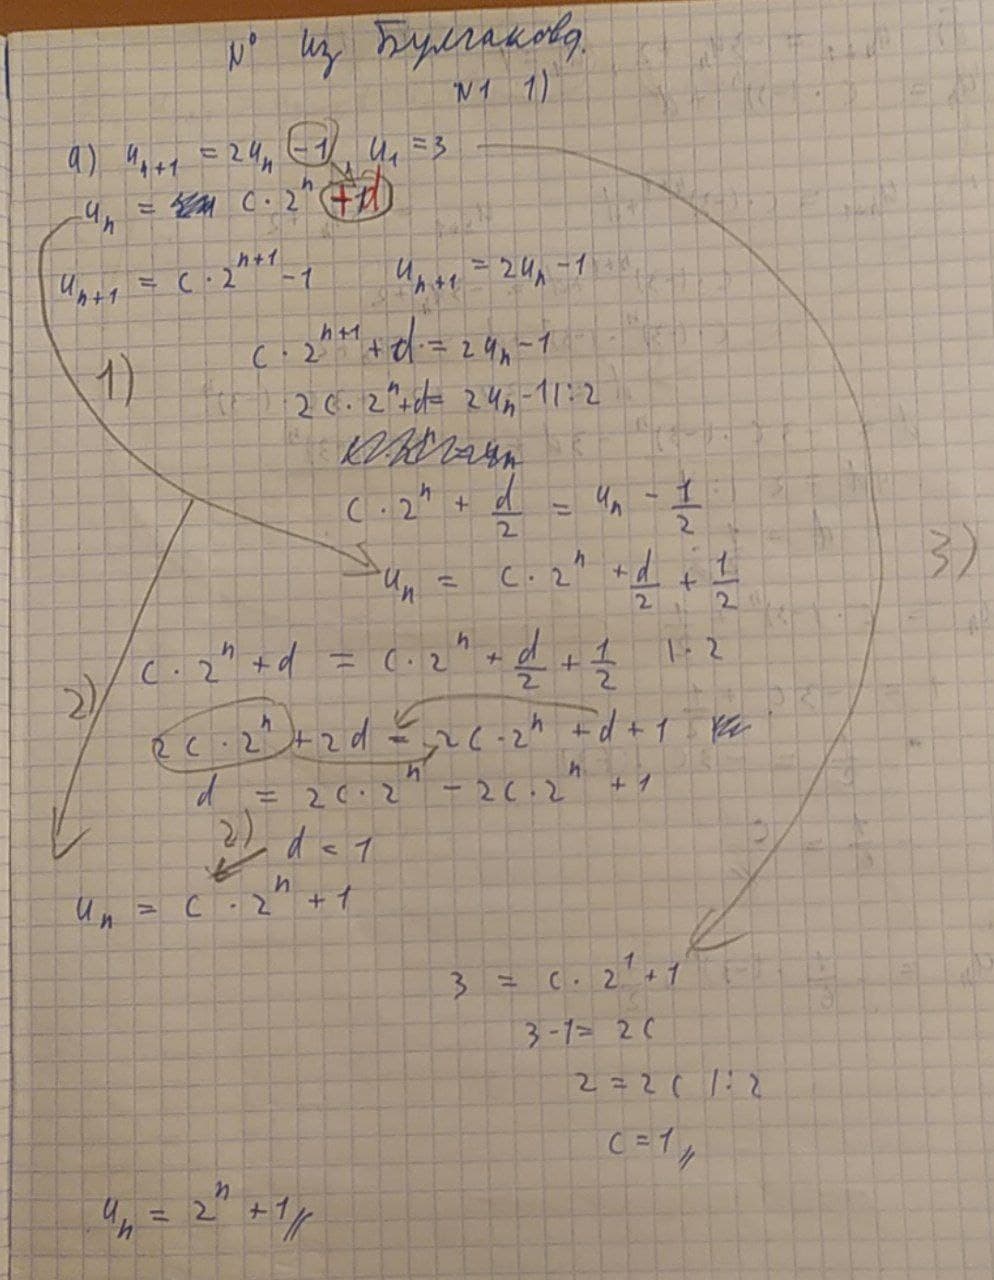 N° из Булгакова.
N1 1)
a) uₙ₊₁ = 2uₙ -1, u₁ = 3
uₙ = c · 2ⁿ + d
uₙ₊₁ = c · 2ⁿ⁺¹ - 1 uₙ₊₁ = 2uₙ - 1
1) c · 2ⁿ⁺¹ + d = 2uₙ - 1
2c · 2ⁿ + d = 2uₙ - 1 |:2
c · 2ⁿ + d/2 = uₙ - 1/2
uₙ = c · 2ⁿ + d/2 + 1/2
3)
c · 2ⁿ + d = c · 2ⁿ + d/2 + 1/2 | · 2
2)
2c · 2ⁿ + 2d = 2c · 2ⁿ + d + 1
d = 2c · 2ⁿ - 2c · 2ⁿ + 1
2) d = 1
uₙ = c · 2ⁿ + 1
3 = c · 2¹ + 1
3 - 1 = 2c
2 = 2c |:2
c = 1 //
uₙ = 2ⁿ + 1 //